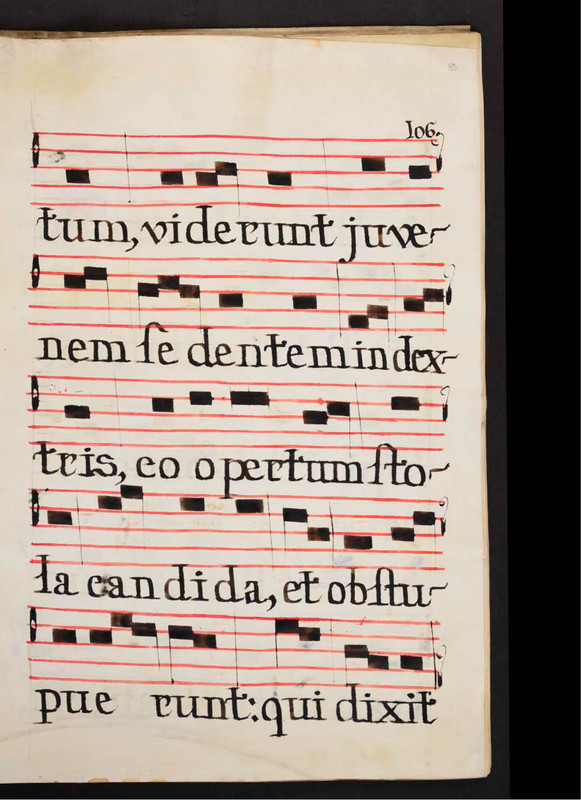 106.
tum, viderunt juve-
nem se dentem in dex-
tris, co o pertum sto-
la can di da, et obstu-
pue runt: qui dixit